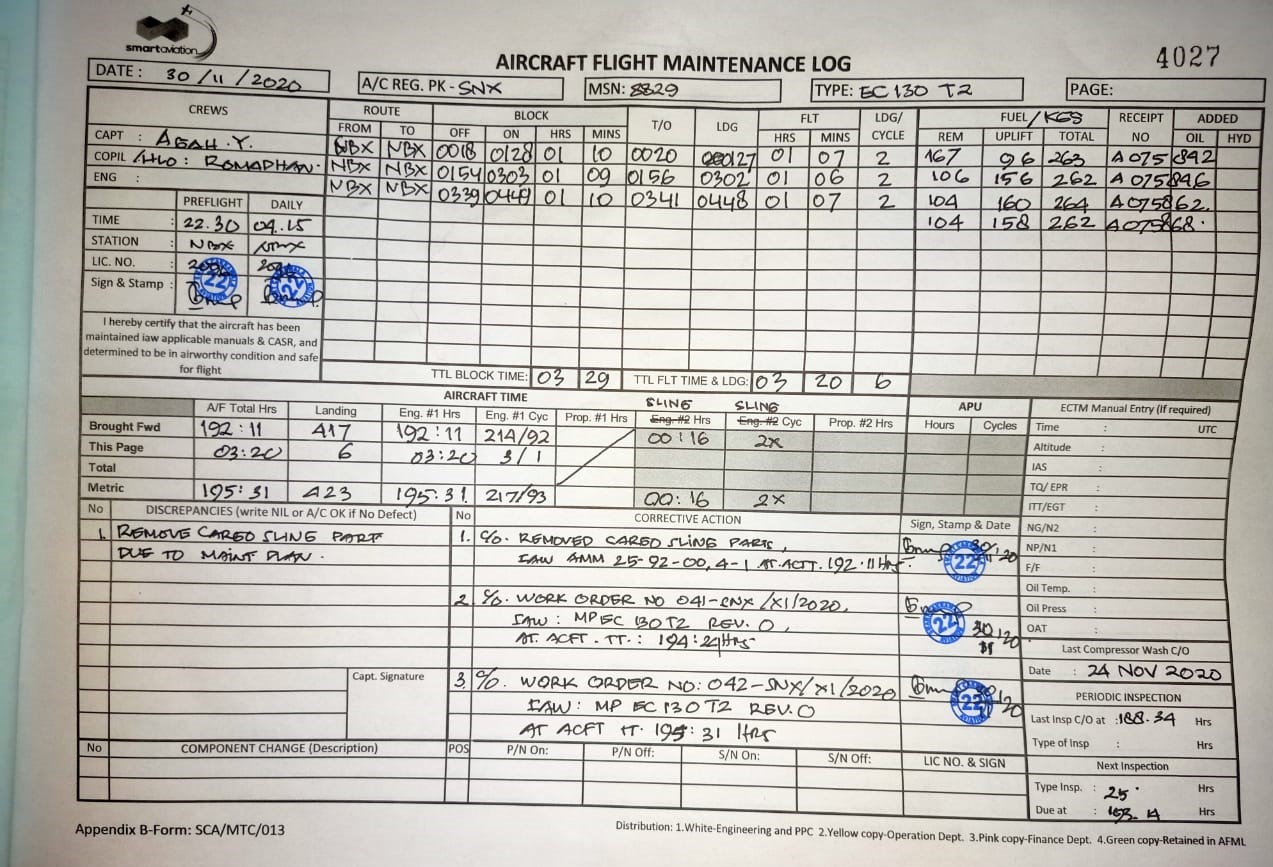 smartaviation
AIRCRAFT FLIGHT MAINTENANCE LOG
4027
DATE : 30/11/2020
A/C REG. PK - SNX
MSN: 8829
TYPE: EC 130 T2
PAGE:
CREWS ROUTE BLOCK T/O LDG FLT LDG/ CYCLE FUEL/KGS RECEIPT NO ADDED
FROM TO OFF ON HRS MINS HRS MINS REM UPLIFT TOTAL OIL HYD
CAPT : AGAH .Y. NBX NBX 0018 0128 01 10 0020 0127 01 07 2 167 96 263 A 075 842
COPIL /HLO : ROMADHAN. NBX NBX 0154 0303 01 09 0156 0302 01 06 2 106 156 262 A 075846
ENG : NBX NBX 0339 0449 01 10 0341 0448 01 07 2 104 160 264 A075862.
104 158 262 A075868.
PREFLIGHT DAILY
TIME : 22.30 04.15
STATION : NBX NBX
LIC. NO. :
Sign & Stamp : 22 22
I hereby certify that the aircraft has been
maintained iaw applicable manuals & CASR, and
determined to be in airworthy condition and safe
for flight
TTL BLOCK TIME: 03 29 TTL FLT TIME & LDG: 03 20 6
AIRCRAFT TIME
A/F Total Hrs Landing Eng. #1 Hrs Eng. #1 Cyc Prop. #1 Hrs SLING Eng. #2 Hrs SLING Eng. #2 Cyc Prop. #2 Hrs
Brought Fwd 192:11 417 192:11 214/92 00:16 2X
This Page 03:20 6 03:20 3/1
Total
Metric 195:31 423 195:31. 217/93 00:16 2X
APU
Hours Cycles
ECTM Manual Entry (If required)
Time : UTC
Altitude :
IAS :
TQ/ EPR :
ITT/EGT :
NG/N2 :
NP/N1 :
F/F :
Oil Temp. :
Oil Press :
OAT :
Last Compressor Wash C/O
Date : 24 NOV 2020
PERIODIC INSPECTION
Last Insp C/O at :188.34 Hrs
Type of Insp : Hrs
Next Inspection
Type Insp. : 25. Hrs
Due at : Hrs
No DISCREPANCIES (write NIL or A/C OK if No Defect) No CORRECTIVE ACTION Sign, Stamp & Date
1. REMOVE CARGO SLING PART
DUE TO MAINT PLAN.
1. C/O. REMOVED CARGO SLING PARTS,
IAW AMM 25-92-00, 4-1 AT. ACTT. 192.11 Hrs.
22
2 C/O. WORK ORDER NO 041-SNX/XI/2020,
IAW : MP EC 130 T2 REV. 0,
AT. ACFT. TT. : 194:24Hrs
22
Capt. Signature
3. C/O. WORK ORDER NO: 042-SNX/XI/2020
IAW: MP EC 130 T2 REV.0
AT ACFT TT. 195:31 HRS
22
No COMPONENT CHANGE (Description) POS P/N On: P/N Off: S/N On: S/N Off: LIC NO. & SIGN
Appendix B-Form: SCA/MTC/013
Distribution: 1.White-Engineering and PPC 2.Yellow copy-Operation Dept. 3.Pink copy-Finance Dept. 4.Green copy-Retained in AFML